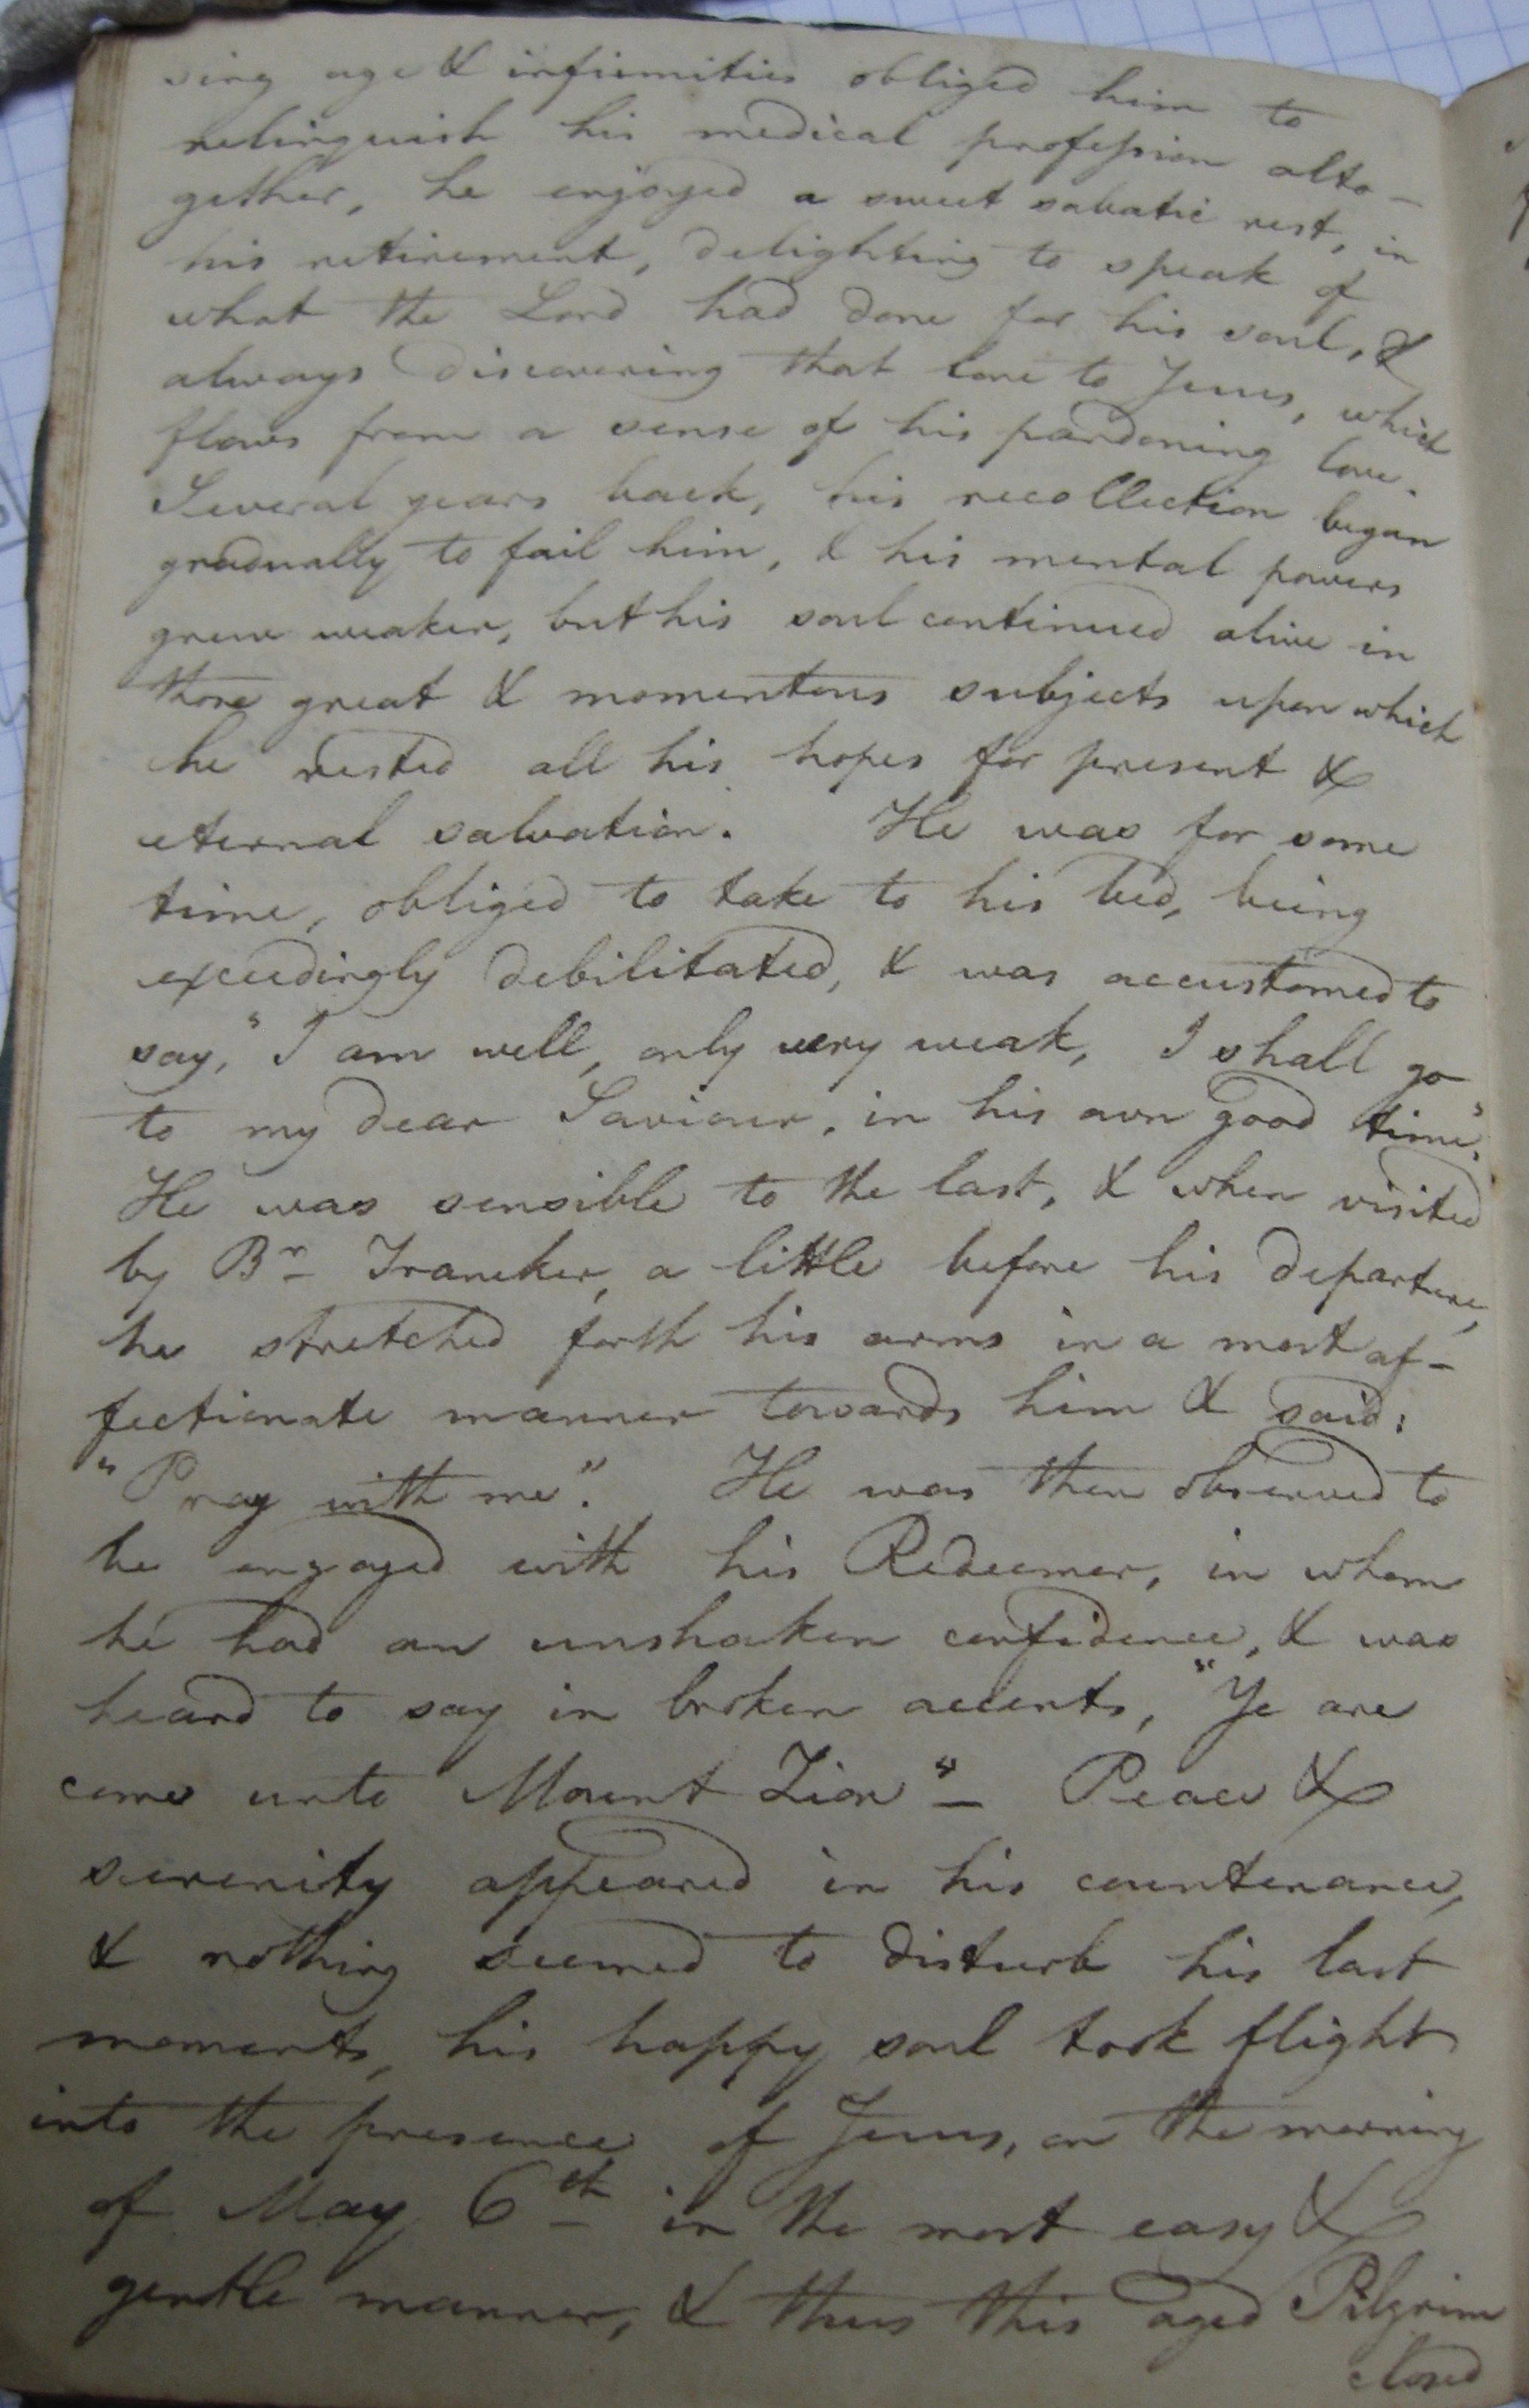 sing age & infirmities obliged him to
relinquish his medical profession alto-
gether, he enjoyed a sweet sabatic rest, in
his retirement, delighting to speak of
what the Lord had done for his soul, &
always discovering that love to Jesus, which
flows from a sense of his pardoning love.
Several years back, his recollection began
gradually to fail him, & his mental powers
grew weaker, but his soul continued alive in
those great & momentous subjects upon which
he rested all his hopes for present &
eternal salvation. He was for some
time, obliged to take to his bed, being
exceedingly debilitated, & was accustomed to
say, "I am well, only very weak, I shall go
to my dear Saviour, in his own good time".
He was sensible to the last, & when visited
by Br Traneker, a little before his departure,
he stretched forth his arms in a most af-
fectionate manner towards him & said:
"Pray with me". He was then observed to
be engaged with his Redeemer, in whom
he had an unshaken confidence, & was
heard to say in broken accents, "Ye are
come unto Mount Zion" - Peace &
serenity appeared in his countenance,
& nothing seemed to disturb his last
moments, his happy soul took flight
into the presence of Jesus, on the morning
of May 6th in the most easy &
gentle manner, & thus this aged Pilgrim
closed